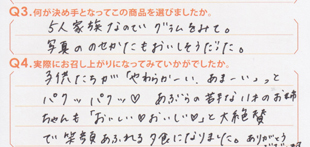 Q3.何が決め手となってこの商品を選びましたか。
5人家族なのでグラムをみて。
写真ののせかたもおいしそうだった。
Q4.実際にお召し上がりになってみていかがでしたか。
子供たちが「やわらかーい、あまーい」っと
パクッパクッ♡ あぶらの苦手な11才のお姉
ちゃんも「おいしい♡おいしい♡」と大絶賛
で笑顔あふれる夕食になりました。ありがとう